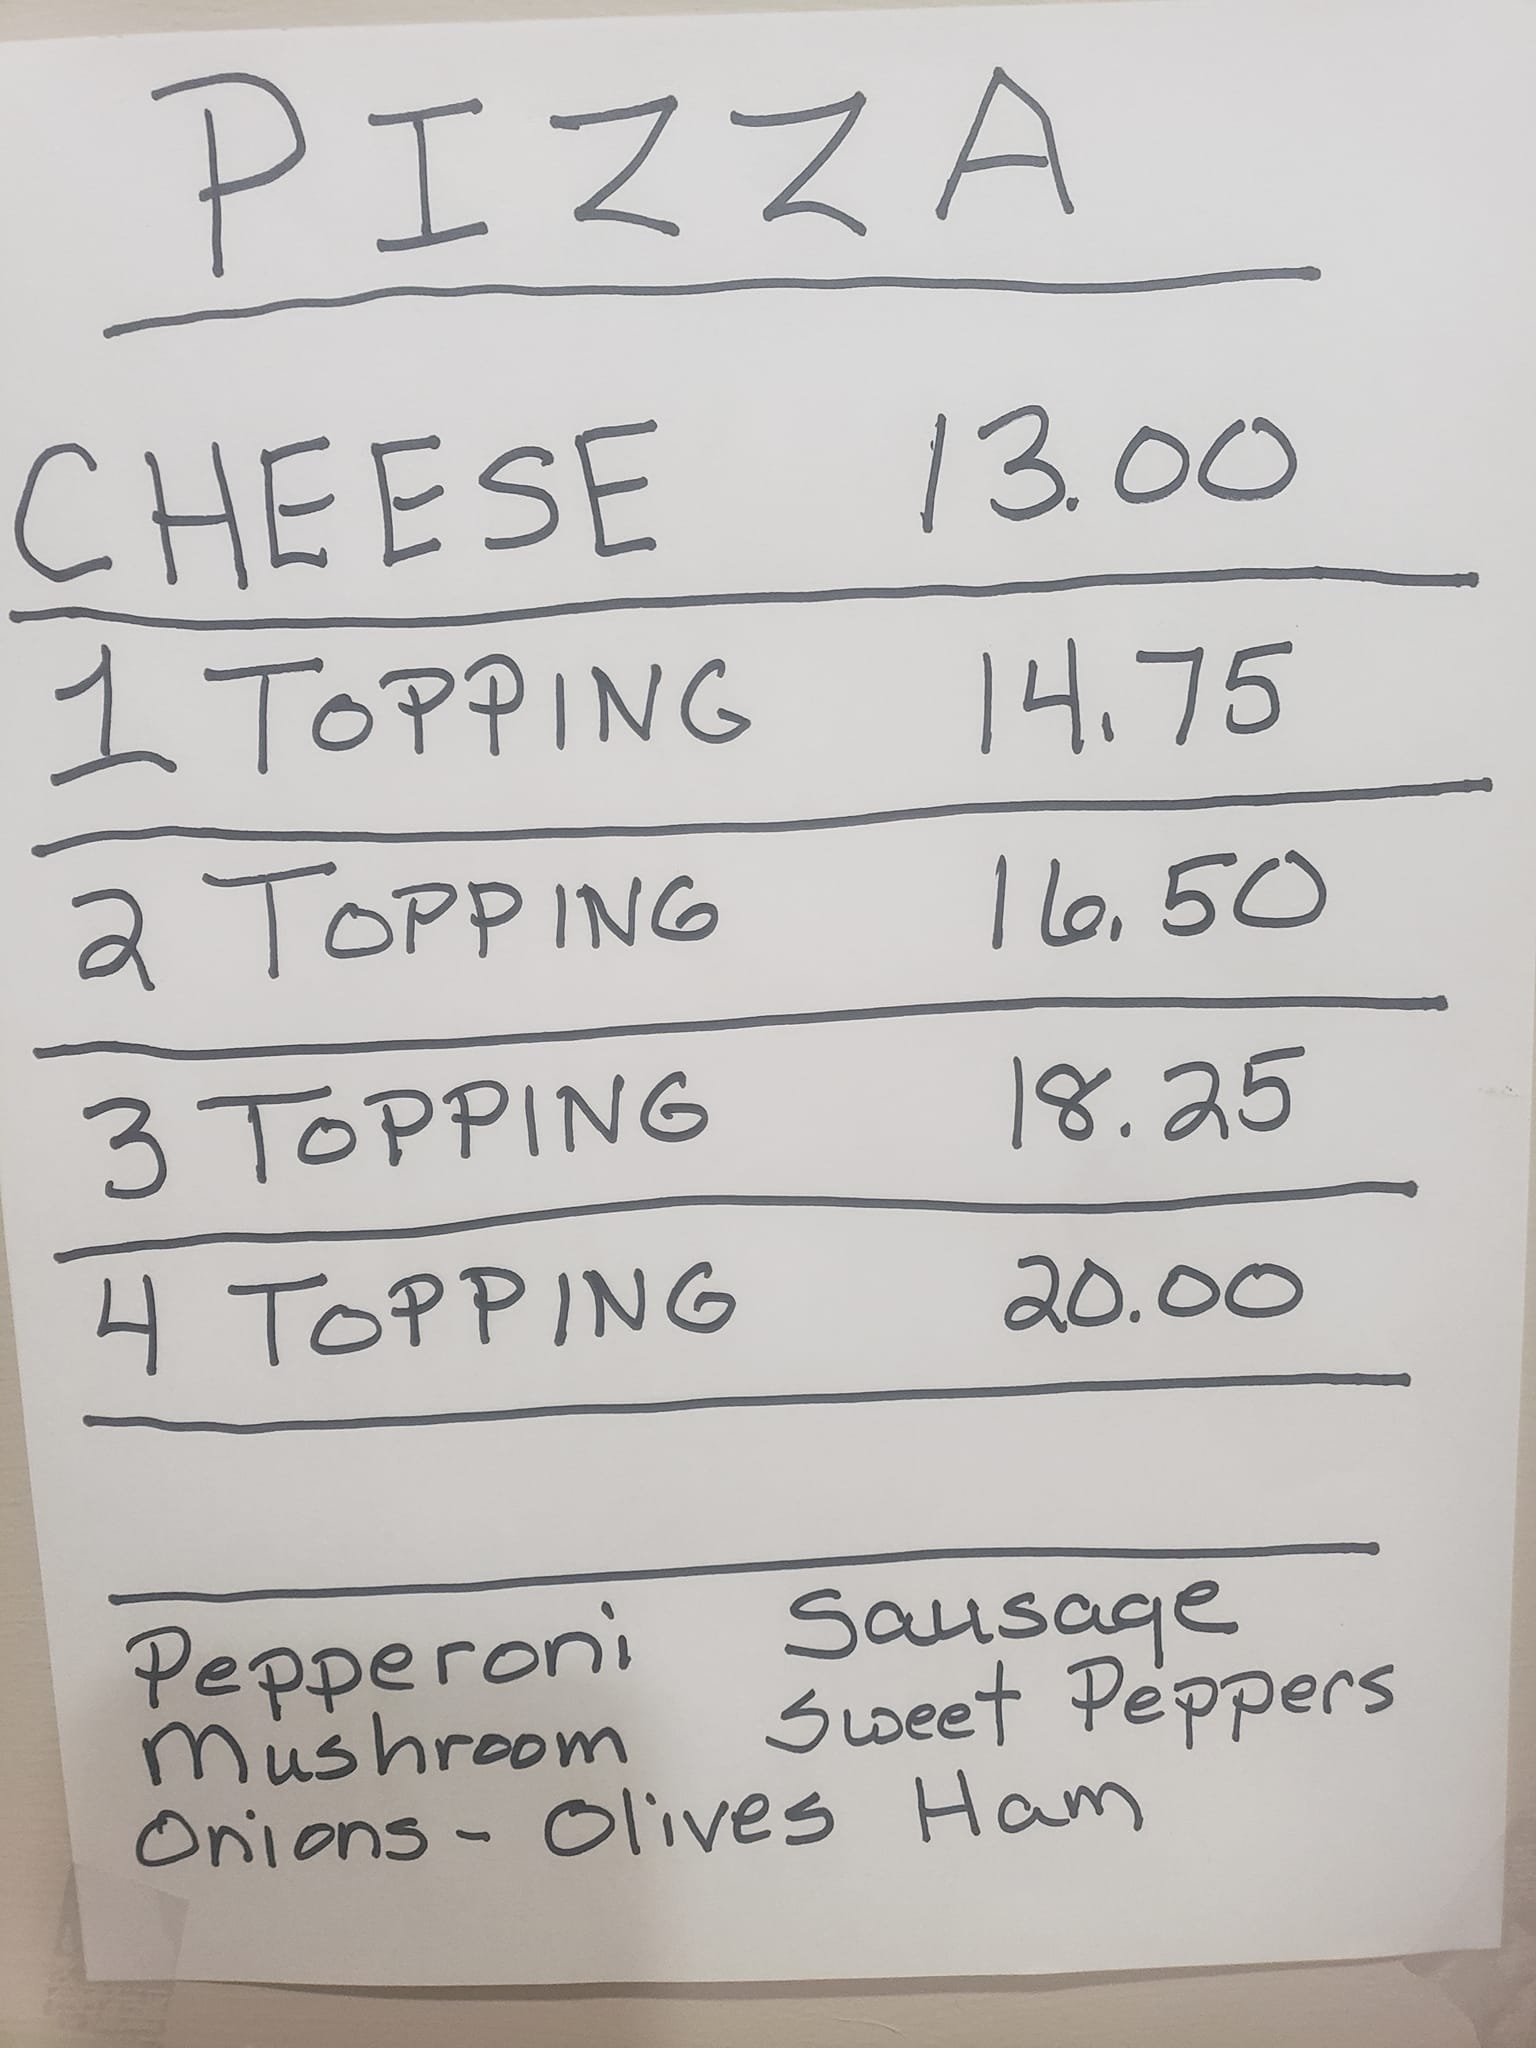 PIZZA
CHEESE 13.00
1 TOPPING 14.75
2 TOPPING 16.50
3 TOPPING 18.25
4 TOPPING 20.00
Pepperoni Sausage
Mushroom Sweet Peppers
Onions - Olives Ham